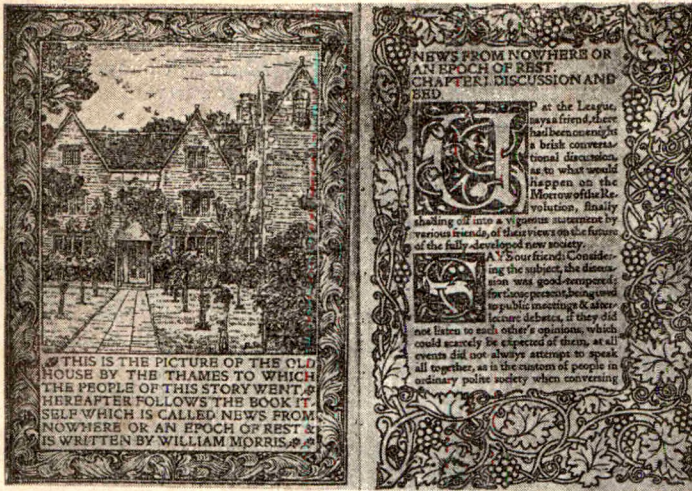 THIS IS THE PICTURE OF THE OLD
HOUSE BY THE THAMES TO WHICH
THE PEOPLE OF THIS STORY WENT
HEREAFTER FOLLOWS THE BOOK IT
SELF WHICH IS CALLED NEWS FROM
NOWHERE OR AN EPOCH OF REST &
IS WRITTEN BY WILLIAM MORRIS
NEWS FROM NOWHERE OR
AN EPOCH OF REST.
CHAPTER I. DISCUSSION AND
BED
UP at the League,
says a friend, there
had been one night
a brisk conversa-
tional discussion,
as to what would
happen on the
Morrow of the Re-
volution, finally
shading off into a vigorous statement by
various friends, of their views on the future
of the fully-developed new society.
SAYS our friend: Consider-
ing the subject, the discus-
sion was good-tempered;
for those present, being used
to public meetings & after-
lecture debates, if they did
not listen to each other's opinions, which
could scarcely be expected of them, at all
events did not always attempt to speak
all together, as is the custom of people in
ordinary polite society when conversing